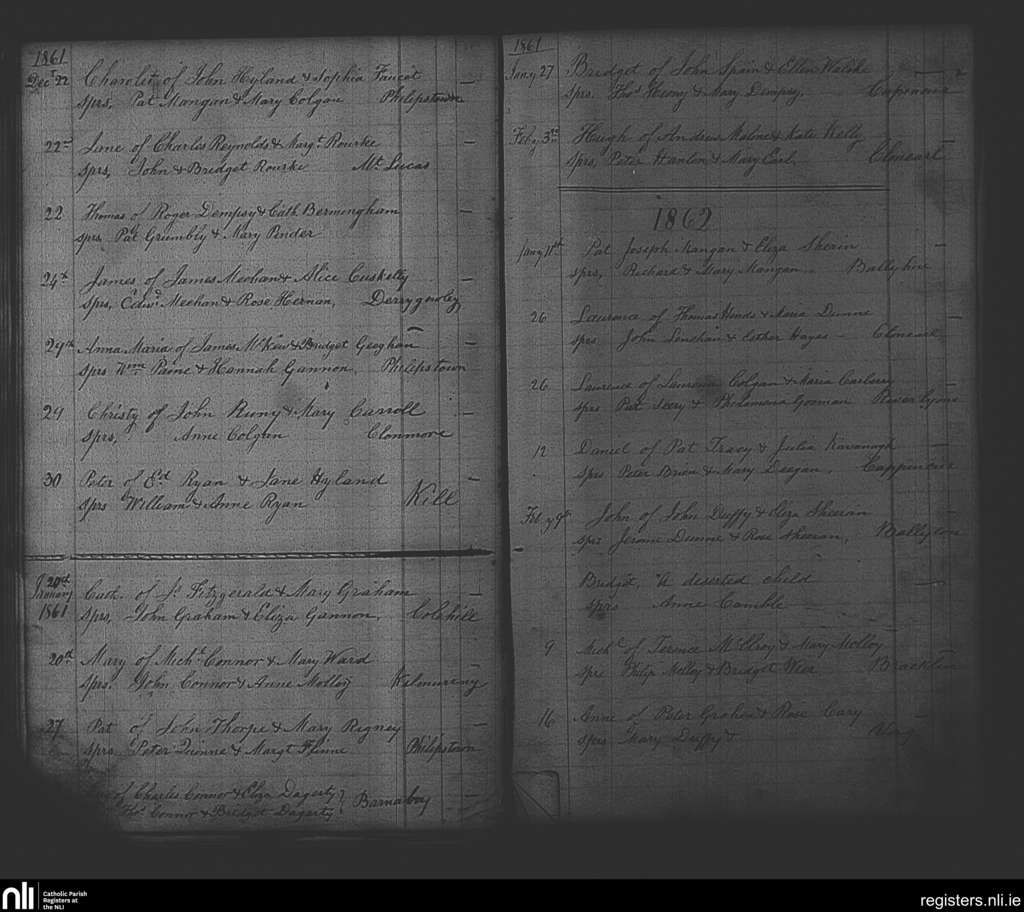 1861
Decr 22 Charolite of John Hyland & Sophia Faucot —
Sprs, Pat Mangan & Mary Colgan Philipstown
22nd Jane of Charles Reynolds & Margt. Rourke —
Sprs, John & Bridget Rourke Mt. Lucas
22 Thomas of Roger Dempsy & Cath Bermingham —
sprs, Pat Grumbly & Mary Pender
24th James of James Meehan & Alice Cuskelly —
Sprs, Edwd. Meehan & Rose Hernan, Derrygrogan
29th Anna Maria of James McKew & Bridget Geoghan —
Sprs Wm Paine & Hannah Gannon, Philipstown
29 Christy of John Runy & Mary Carroll —
Sprs, Anne Colgan Clonmore
30 Peter of Ed. Ryan & Jane Hyland —
Sprs William & Anne Ryan Kill
20th January Cath. of Js. Fitzgerald & Mary Graham —
1861 Sprs, John Graham & Eliza Gannon, Colehill
20th Mary of Michl. Connor & Mary Ward —
Sprs. John Connor & Anne Molloy
27 Pat of John Thorpe & Mary Rigney —
Sprs, Peter Quinne & Margt Flinne Philipstown
of Charles Connor & Eliza Dagerty —
Thos. Connor & Bridget Dagerty Barnaboy
1861
Jany 27 Bridget of John Spain & Ellen Walshe —
Sprs. Thos. Heavy & Mary Dempsy, Capencur
Feby 3rd Hugh of Andrew Malone & Kate Kelly —
Sprs, Peter Hanlon & Mary Earl Cloneart
1862
Jany 11th Pat Joseph Mangan & Eliza Sheain —
Sprs, Richard & Mary Mangan
26 Laurence of Thomas Hinds & Maria Dunne —
sprs John Lenehan & Esther Hayes — Cloneart
26 Laurence of Laurence Colgan & Maria Carberry —
Sprs Pat Seery & Philomena Gorman River Lyons
12 Daniel of Pat Tracy & Julia Kavanagh —
Sprs Peter Brien & Mary Deegan, Cappencur
Feby 9th John of John Duffy & Eliza Sheeran
sprs Jerome Dunne & Rose Sheeran, Ballyton
Bridget, A deserted child —
Sprs Anne Camble
9 Michl of Terence McElroy & Mary Molloy —
Sprs Philip Molloy & Bridget Weir
16 Anne of Peter Graham & Rose Cary —
Sprs Mary Duffy &
nli Catholic Parish
Registers at
the NLI
registers.nli.ie